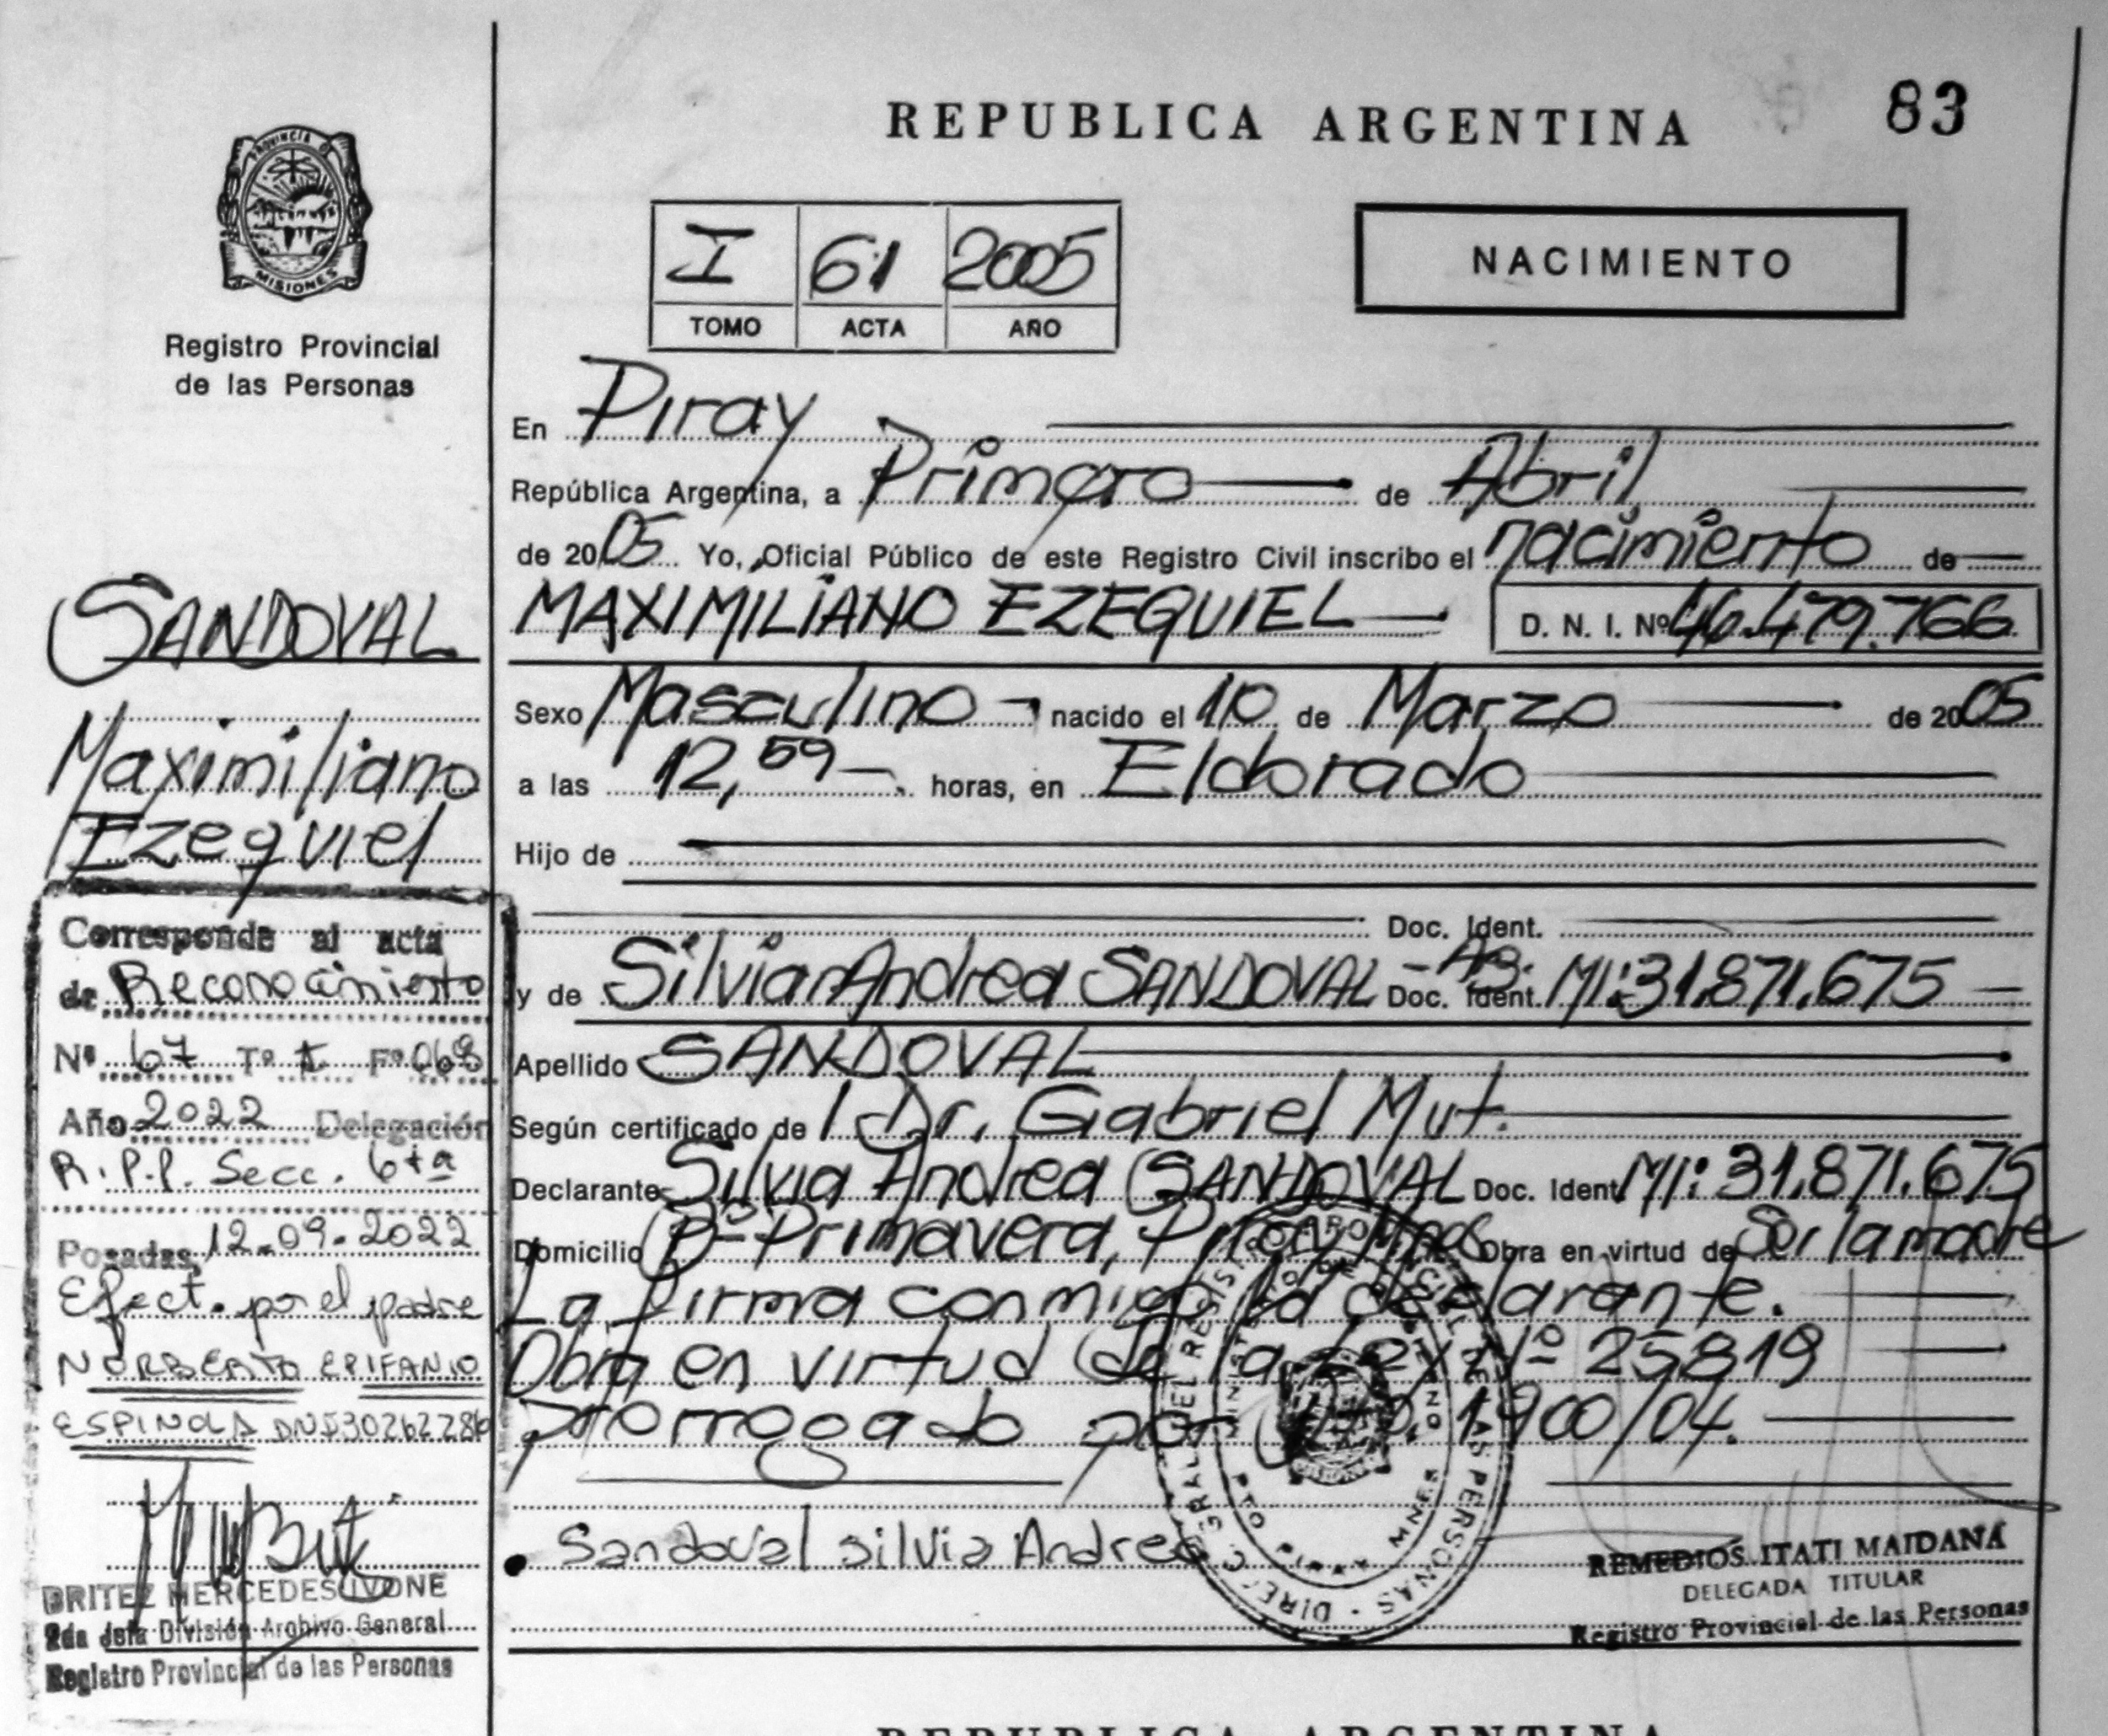 REPUBLICA ARGENTINA
83
PROVINCIA D
MISIONES
Registro Provincial
de las Personas
I 61 2005
TOMO ACTA AÑO
NACIMIENTO
En Piray
República Argentina, a Primero de Abril
de 2005 Yo, Oficial Público de este Registro Civil inscribo el nacimiento de
MAXIMILIANO EZEQUIEL D. N. I. Nº 46.479.766
Sexo Masculino nacido el 10 de Marzo de 2005
a las 12,59 horas, en Eldorado
Hijo de
Doc. Ident.
y de Silvia Andrea SANDOVAL Doc. Ident. MI: 31.871.675
Apellido SANDOVAL
Según certificado de Dr. Gabriel Mut.
Declarante Silvia Andrea SANDOVAL Doc. Ident MI: 31.871.675
Domicilio Bº Primavera, Piray Obra en virtud de Ser la madre
La firma conmigo la declarante.
Obra en virtud de la Ley Nº 25819
prorrogado por 1900/04.
Sandoval silvia Andrea
REMEDIOS ITATI MAIDANA
DELEGADA TITULAR
Registro Provincial de las Personas
SANDOVAL
Maximiliano
Ezequiel
Corresponde al acta
de Reconocimiento
Nº 67 Tº I Fº 068
Año 2022 Delegación
R.P.P. Secc. 6ta
Posadas, 12.09.2022
Efect. por el padre
NORBERTO EPIFANIO
ESPINOLA DNI 30262286
BRITEZ MERCEDES IVONE
2da Jefa División Archivo General
Registro Provincial de las Personas
REPUBLICA ARGENTINA